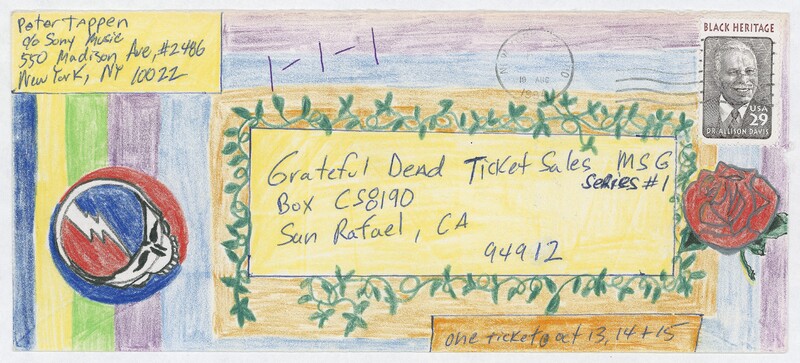 Peter Tappen
c/o Sony Music
550 Madison Ave, #2486
New York, NY 10022
1-1-1
10 AUG
BLACK HERITAGE
USA
29
DR. ALLISON DAVIS
Grateful Dead Ticket Sales MSG
Series #1
Box CS8190
San Rafael, CA
94912
one ticket @ oct 13, 14 + 15